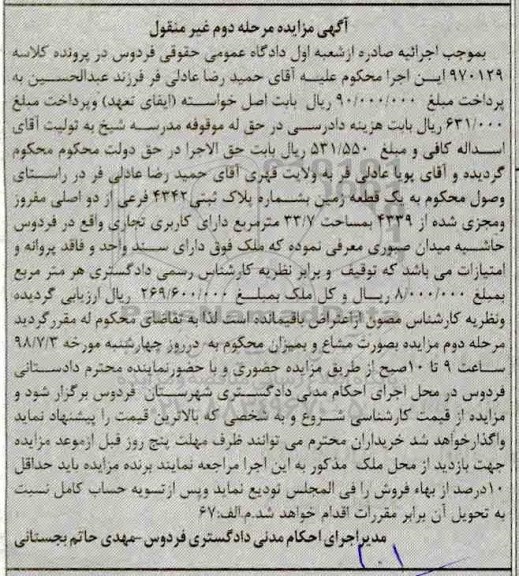 آگهی مزایده مرحله دوم غیر منقول
بموجب اجرائیه صادره ازشعبه اول دادگاه عمومی حقوقی فردوس در پرونده کلاسه
۹۷۰۱۲۹ این اجرا محکوم علیه آقای حمید رضا عادلی فر فرزند عبدالحسین به
پرداخت مبلغ ۹۰/۰۰۰/۰۰۰ ریال بابت اصل خواسته (ایفای تعهد) وپرداخت مبلغ
۶۳۱/۰۰۰ ریال بابت هزینه دادرسی در حق له موقوفه مدرسه شیخ به تولیت آقای
اسداله کافی و مبلغ ۵۳۱/۵۵۰ ریال بابت حق الاجرا در حق دولت محکوم محکوم
گردیده و آقای پویا عادلی فر به ولایت قهری آقای حمید رضا عادلی فر در راستای
وصول محکوم به یک قطعه زمین بشماره پلاک ثبتی۴۳۴۲ فرعی از دو اصلی مفروز
ومجزی شده از ۴۳۳۹ بمساحت ۳۳/۷ مترمربع دارای کاربری تجاری واقع در فردوس
حاشیه میدان صبوری معرفی نموده که ملک فوق دارای سند واحد و فاقد پروانه و
امتیازات می باشد که توقیف و برابر نظریه کارشناس رسمی دادگستری هر متر مربع
بمبلغ ۸/۰۰۰/۰۰۰ ریال و کل ملک بمبلغ ۲۶۹/۶۰۰/۰۰۰ ریال ارزیابی گردیده
ونظریه کارشناس مصون ازاعتراض باقیمانده است لذا به تقاضای محکوم له مقررگردید
مرحله دوم مزایده بصورت مشاع و بمیزان محکوم به درروز چهارشنبه مورخه ۹۸/۷/۳
ساعت ۹ تا ۱۰صبح از طریق مزایده حضوری و با حضورنماینده محترم دادستانی
فردوس در محل اجرای احکام مدنی دادگستری شهرستان فردوس برگزار شود و
مزایده از قیمت کارشناسی شروع و به شخصی که بالاترین قیمت را پیشنهاد نماید
واگذارخواهد شد خریداران محترم می توانند ظرف مهلت پنج روز قبل ازموعد مزایده
جهت بازدید از محل ملک مذکور به این اجرا مراجعه نمایند برنده مزایده باید حداقل
۱۰درصد از بهاء فروش را فی المجلس تودیع نماید وپس ازتسویه حساب کامل نسبت
به تحویل آن برابر مقررات اقدام خواهد شد.م.الف:۶۷
مدیراجرای احکام مدنی دادگستری فردوس -مهدی حاتم بجستانی